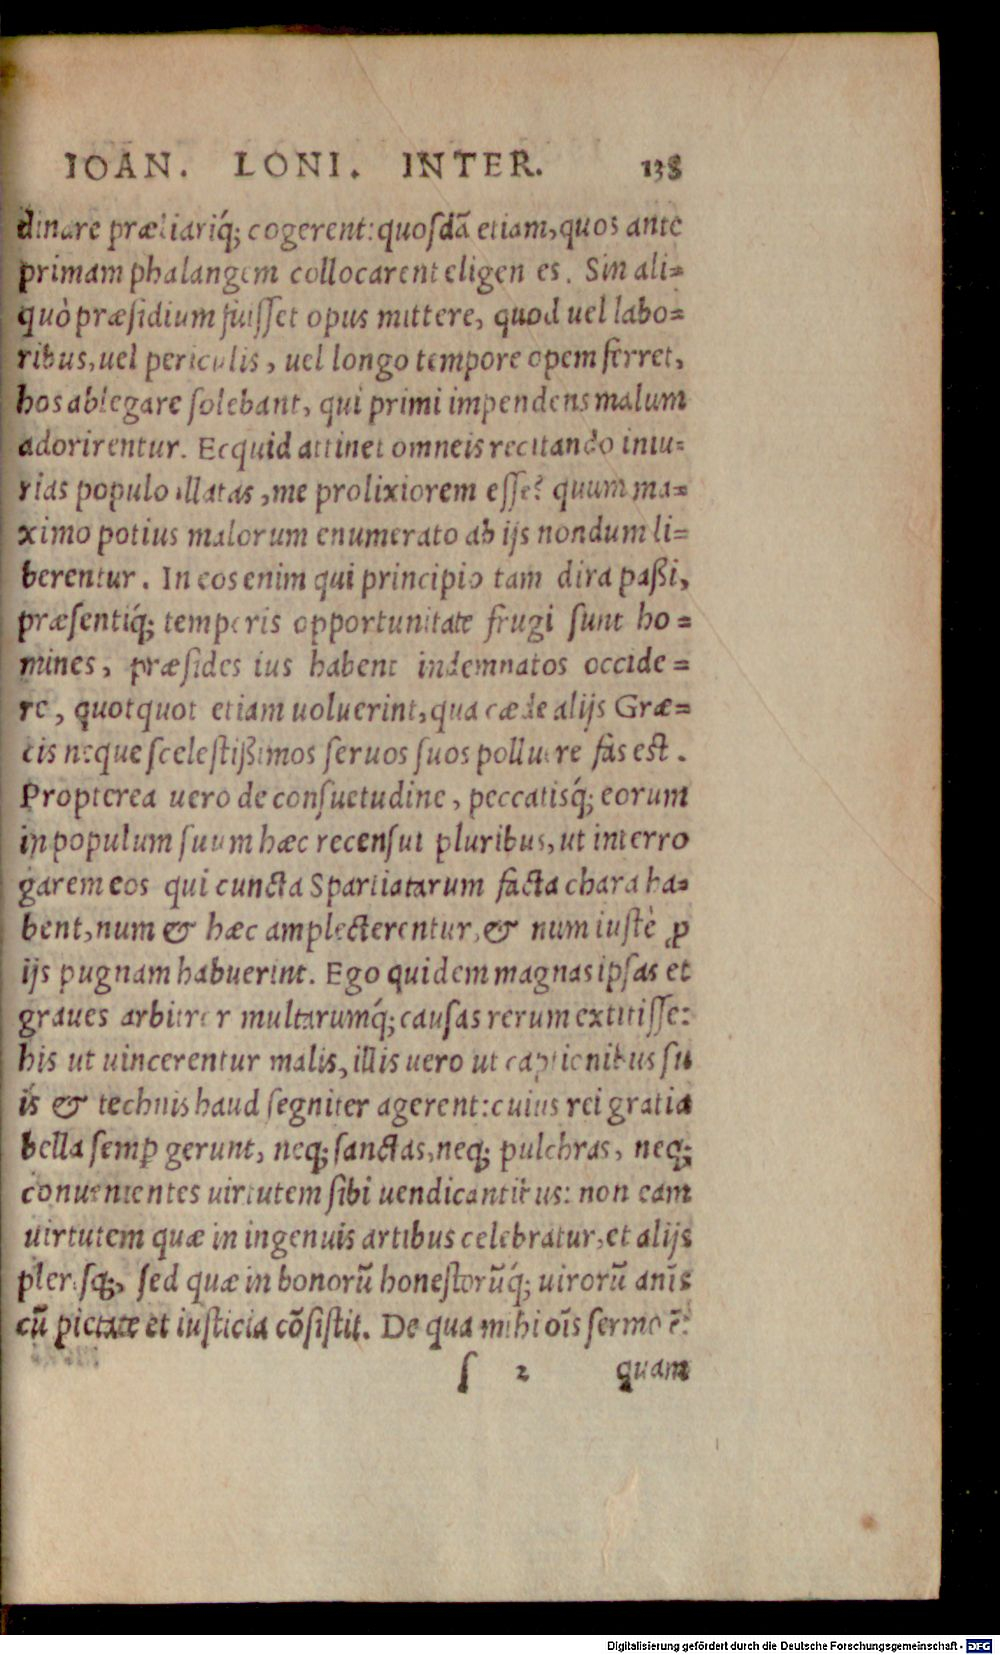 IOAN. LONI. INTER. 138
dinare præliariq́; cogerent: quosdā etiam, quos ante
primam phalangem collocarent eligen es. Sin ali=
quò præsidium fuisset opus mittere, quod uel labo=
ribus, uel periculis, uel longo tempore opem ferret,
hos ablegare solebant, qui primi impendens malum
adorirentur. Ecquid attinet omneis recitando iniu=
rias populo illatas, me prolixiorem esse? quum ma=
ximo potius malorum enumerato ab ijs nondum li=
berentur. In eos enim qui principio tam dira paßi,
præsentiq́; temporis opportunitate frugi sunt ho=
mines, præsides ius habent indemnatos occide=
re, quotquot etiam uoluerint, qua cæde alijs Græ=
cis neque scelestißimos seruos suos polluere fas est.
Propterea uero de consuetudine, peccatisq́; eorum
in populum suum hæc recensui pluribus, ut interro
garem eos qui cuncta Spartiatarum facta chara ha=
bent, num & hæc amplecterentur, & num iustè ꝓ
ijs pugnam habuerint. Ego quidem magnas ipsas et
graues arbitror multarumq́; causas rerum extitisse:
his ut uincerentur malis, illis uero ut captionibus su
is & technis haud segniter agerent: cuius rei gratia
bella semꝑ gerunt, neq; sanctas, neq; pulchras, neq;
conuenientes uirtutem sibi uendicantibus: non eam
uirtutem quæ in ingenuis artibus celebratur, et alijs
plerisq;, sed quæ in bonorū honestorūq́; uirorū anīs
cū pietate et iusticia cōsistit. De qua mihi oīs sermo ē:
s 2 quam
Digitalisierung gefördert durch die Deutsche Forschungsgemeinschaft - DFG